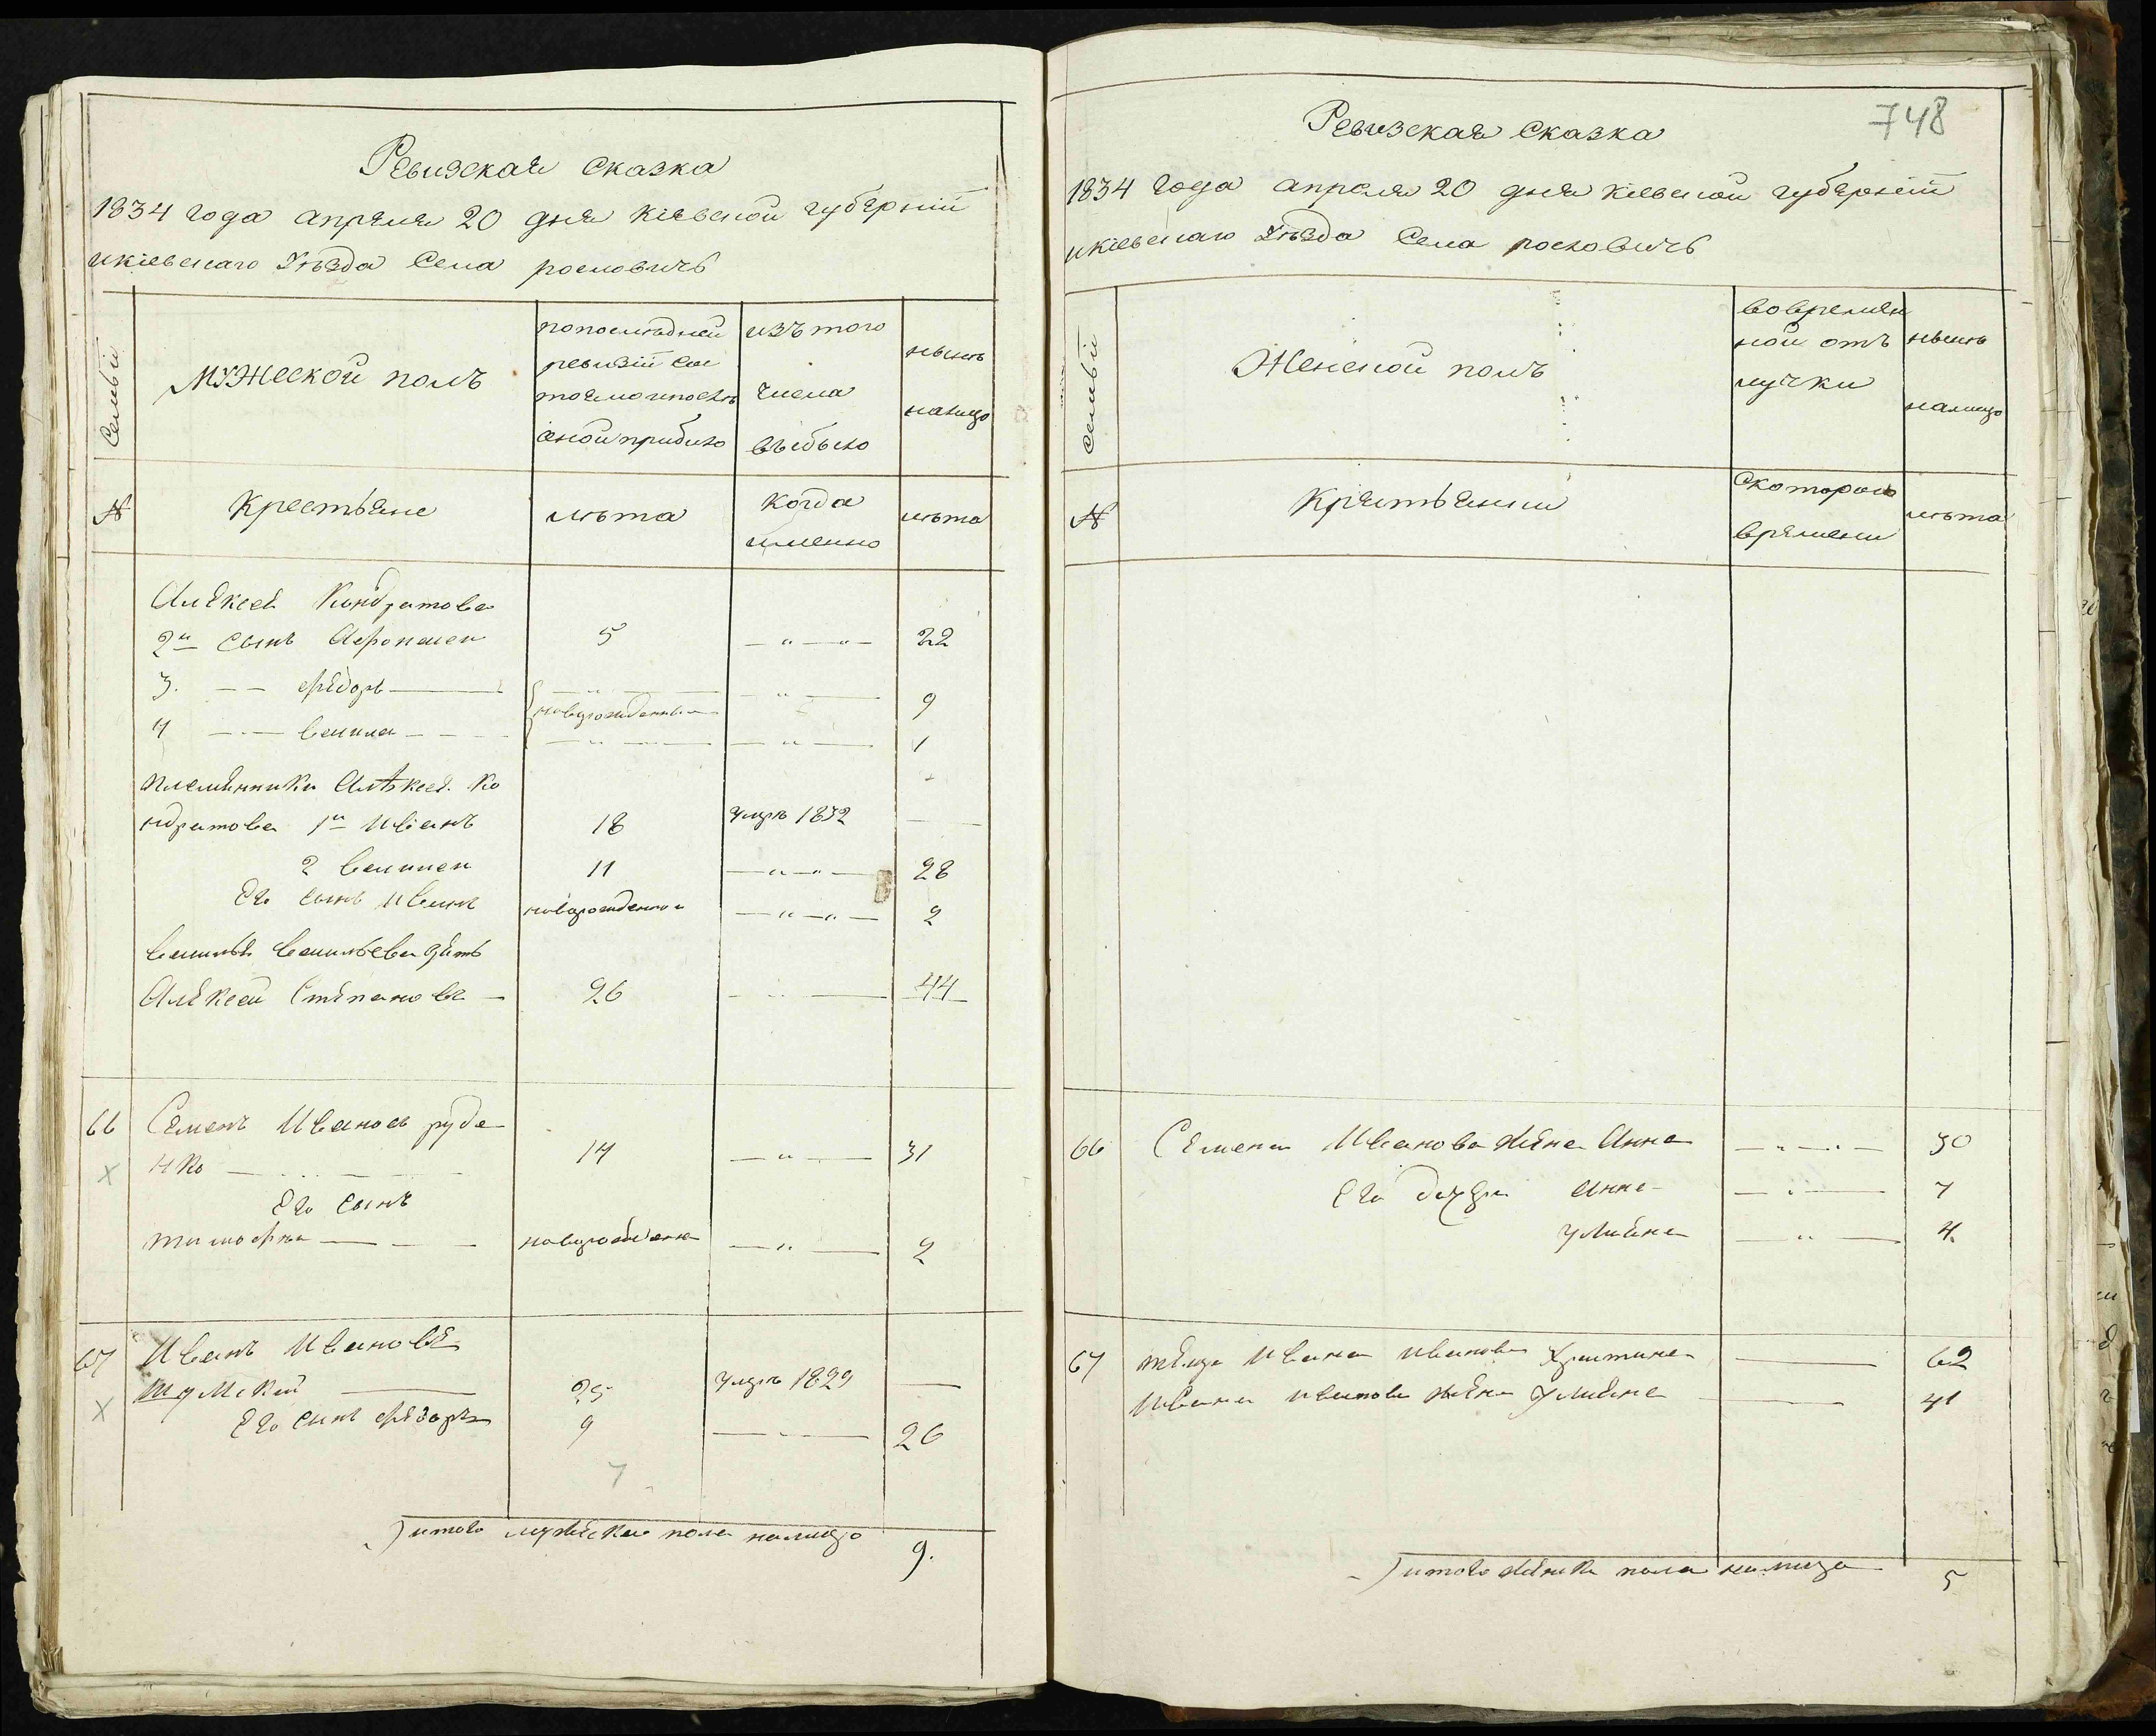 Ревизская сказка
1834 года апреля 20 дня Кіевской губерніи
икіевскаго Уѣзда Села рословичъ
Семьи
Мужеской полъ
попослѣдней
ревизіи сос
тояло ипосля
оной прибыло
изъ того
числа
въıбыло
нынѣ
налицо
№
Крестьяне
лѣта
когда
именно
лѣта
Алексея Кондратова
2й сынъ Афонасеи 5 22
3. — — Федоръ 9
новорожденныя
4 — — Василеи 1
племянники Алѣксея Ко
ндратова 1й Иванъ 18 умръ 1832
2 Василеи 11 28
Его сынъ Иванъ новорожденнои 2
Василья Васильева зять
Алексей Степановъ 26 44
66 Семенъ Ивановъ руде
нко 14 31
Его сынъ
тимофеи новорожденои 2
67 Иванъ Ивановъ
Шумскій 25 умръ 1829
Его сынъ Федоръ 9 26
7
итого мужеска пола налицо 9.
748
Ревизская Сказка
1834 года апреля 20 дня Кіевской губерніи
икіевскаго Уѣзда Села рословичъ
Семьи
Женской полъ
вовремян
ной отъ
лучки
нынѣ
налицо
№
Крестьянки
скотораго
времени
лѣта
66 Семена Иванова жена Анна 30
Его дочери анна 7
улияна 4.
67 теща Ивана иванова Христина 62
Ивана иванова жена Улияна 41
итого женска пола налицо 5